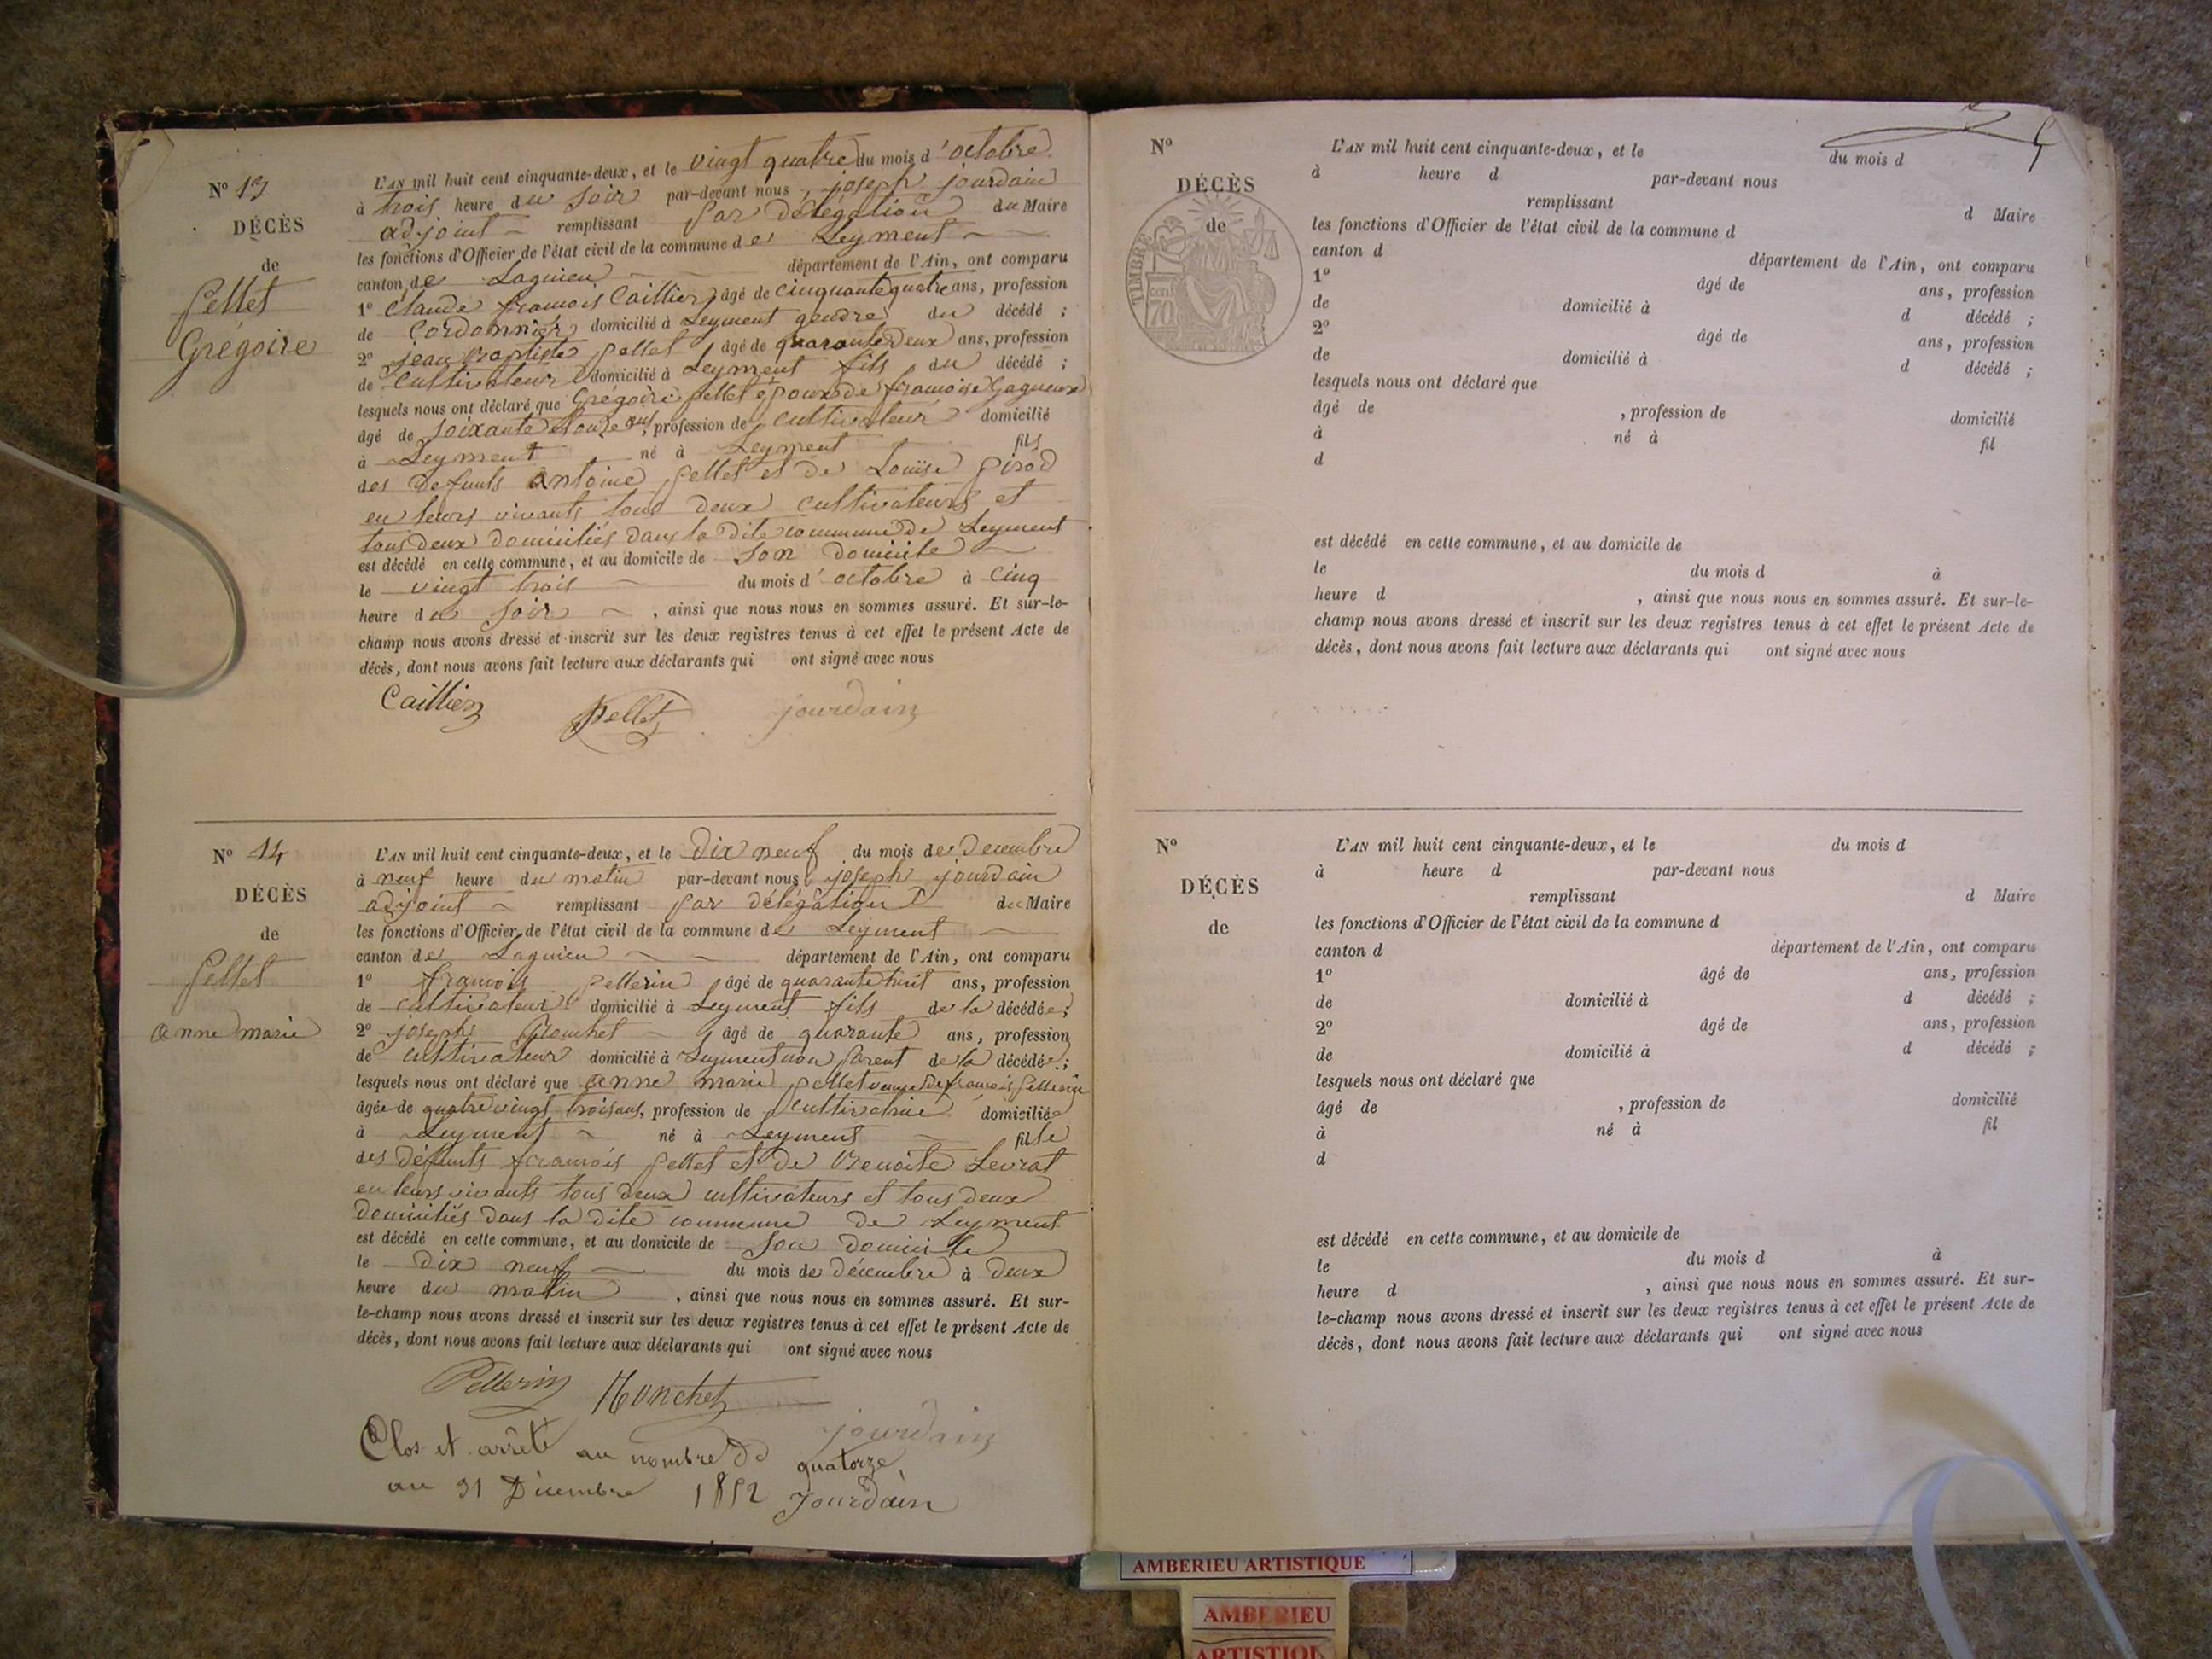 Nº 13
DÉCÈS
de
Pellet
Grégoire
L'AN mil huit cent cinquante-deux, et le vingt quatre du mois d'octobre
à trois heure du soir par-devant nous, joseph jourdain
adjoint remplissant par délégation du Maire
les fonctions d'Officier de l'état civil de la commune de Leyment
canton de Lagnieu département de l'Ain, ont comparu
1º Claude françois Caillier, âgé de cinquante quatre ans, profession
de Cordonnier domicilié à Leyment gendre du décédé ;
2º jean Baptiste pellet, âgé de quarante deux ans, profession
de cultivateur domicilié à Leyment fils du décédé ;
lesquels nous ont déclaré que Grégoire pellet époux de françoise
âgé de soixante et onze ans, profession de cultivateur domicilié
à Leyment né à Leyment fils
des defunts antoine pellet et de Louise girod
en leurs vivants tous deux cultivateurs et
tous deux domiciliés dans la dite commune de Leyment
est décédé en cette commune, et au domicile de son domicile
le vingt trois du mois d'octobre à cinq
heure du soir, ainsi que nous nous en sommes assuré. Et sur-le-
champ nous avons dressé et inscrit sur les deux registres tenus à cet effet le présent Acte de
décès, dont nous avons fait lecture aux déclarants qui ont signé avec nous
Caillier pellet jourdain
Nº 14
DÉCÈS
de
Pellet
anne marie
L'AN mil huit cent cinquante-deux, et le Dix neuf du mois de Décembre
à neuf heure du matin par-devant nous, joseph jourdain
adjoint remplissant par délégation du Maire
les fonctions d'Officier de l'état civil de la commune de Leyment
canton de Lagnieu département de l'Ain, ont comparu
1º françois pellerin, âgé de quarante huit ans, profession
de cultivateur domicilié à Leyment fils de la décédée ;
2º joseph, âgé de quarante ans, profession
de cultivateur domicilié à Leyment non parent de la décédée ;
lesquels nous ont déclaré que anne marie pellet veuve de françois pellerin
âgée de quatre vingt trois ans, profession de cultivatrice domiciliée
à Leyment né à Leyment fille
des défunts françois pellet et de Benoite Levrat
en leurs vivants tous deux cultivateurs et tous deux
domiciliés dans la dite commune de Leyment
est décédé en cette commune, et au domicile de son domicile
le dix neuf du mois de décembre à deux
heure du matin, ainsi que nous nous en sommes assuré. Et sur-
le-champ nous avons dressé et inscrit sur les deux registres tenus à cet effet le présent Acte de
décès, dont nous avons fait lecture aux déclarants qui ont signé avec nous
Pellerin
jourdain
Clos et arrêté au nombre de quatorze,
au 31 Décembre 1852 Jourdain
Nº
DÉCÈS
de
TIMBRE
L'AN mil huit cent cinquante-deux, et le du mois d
à heure d par-devant nous
remplissant d Maire
les fonctions d'Officier de l'état civil de la commune d
canton d département de l'Ain, ont comparu
1º âgé de ans, profession
de domicilié à d décédé ;
2º âgé de ans, profession
de domicilié à d décédé ;
lesquels nous ont déclaré que
âgé de , profession de domicilié
à né à fil
d
est décédé en cette commune, et au domicile de
le du mois d à
heure d , ainsi que nous nous en sommes assuré. Et sur-le-
champ nous avons dressé et inscrit sur les deux registres tenus à cet effet le présent Acte de
décès, dont nous avons fait lecture aux déclarants qui ont signé avec nous
Nº
DÉCÈS
de
L'AN mil huit cent cinquante-deux, et le du mois d
à heure d par-devant nous
remplissant d Maire
les fonctions d'Officier de l'état civil de la commune d
canton d département de l'Ain, ont comparu
1º âgé de ans, profession
de domicilié à d décédé ;
2º âgé de ans, profession
de domicilié à d décédé ;
lesquels nous ont déclaré que
âgé de , profession de domicilié
à né à fil
d
est décédé en cette commune, et au domicile de
le du mois d à
heure d , ainsi que nous nous en sommes assuré. Et sur-
le-champ nous avons dressé et inscrit sur les deux registres tenus à cet effet le présent Acte de
décès, dont nous avons fait lecture aux déclarants qui ont signé avec nous
AMBERIEU ARTISTIQUE
AMBERIEU